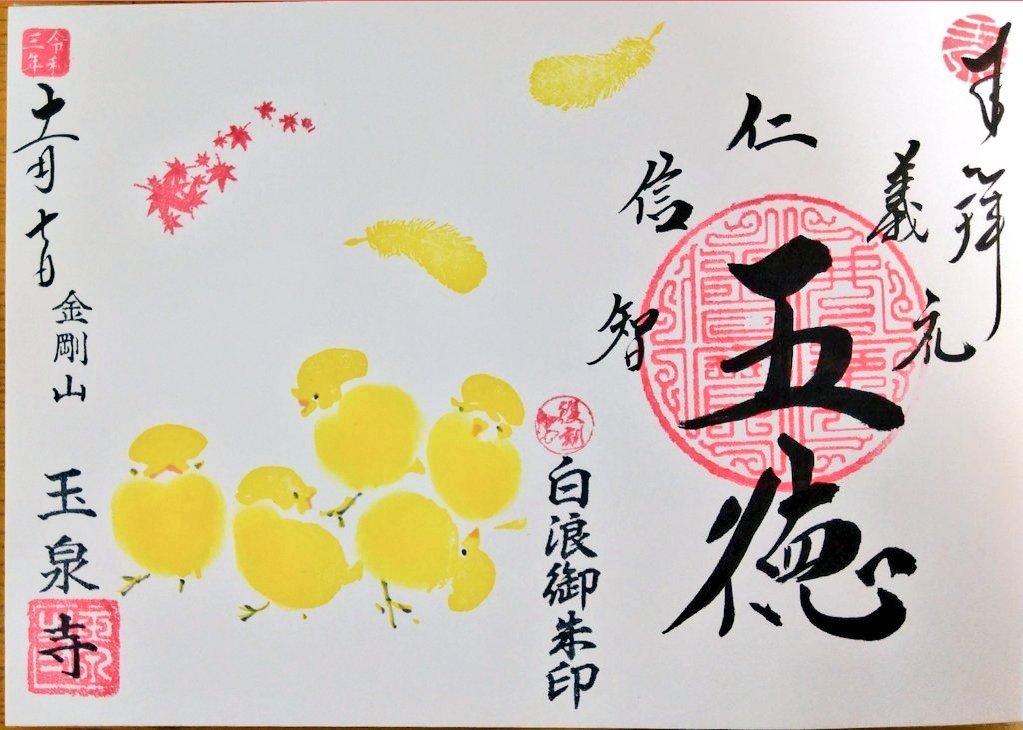 奉拝
仁
義
礼
智
信
五徳
白浪御朱印
令和三年
十一月十日
金剛山
玉泉寺